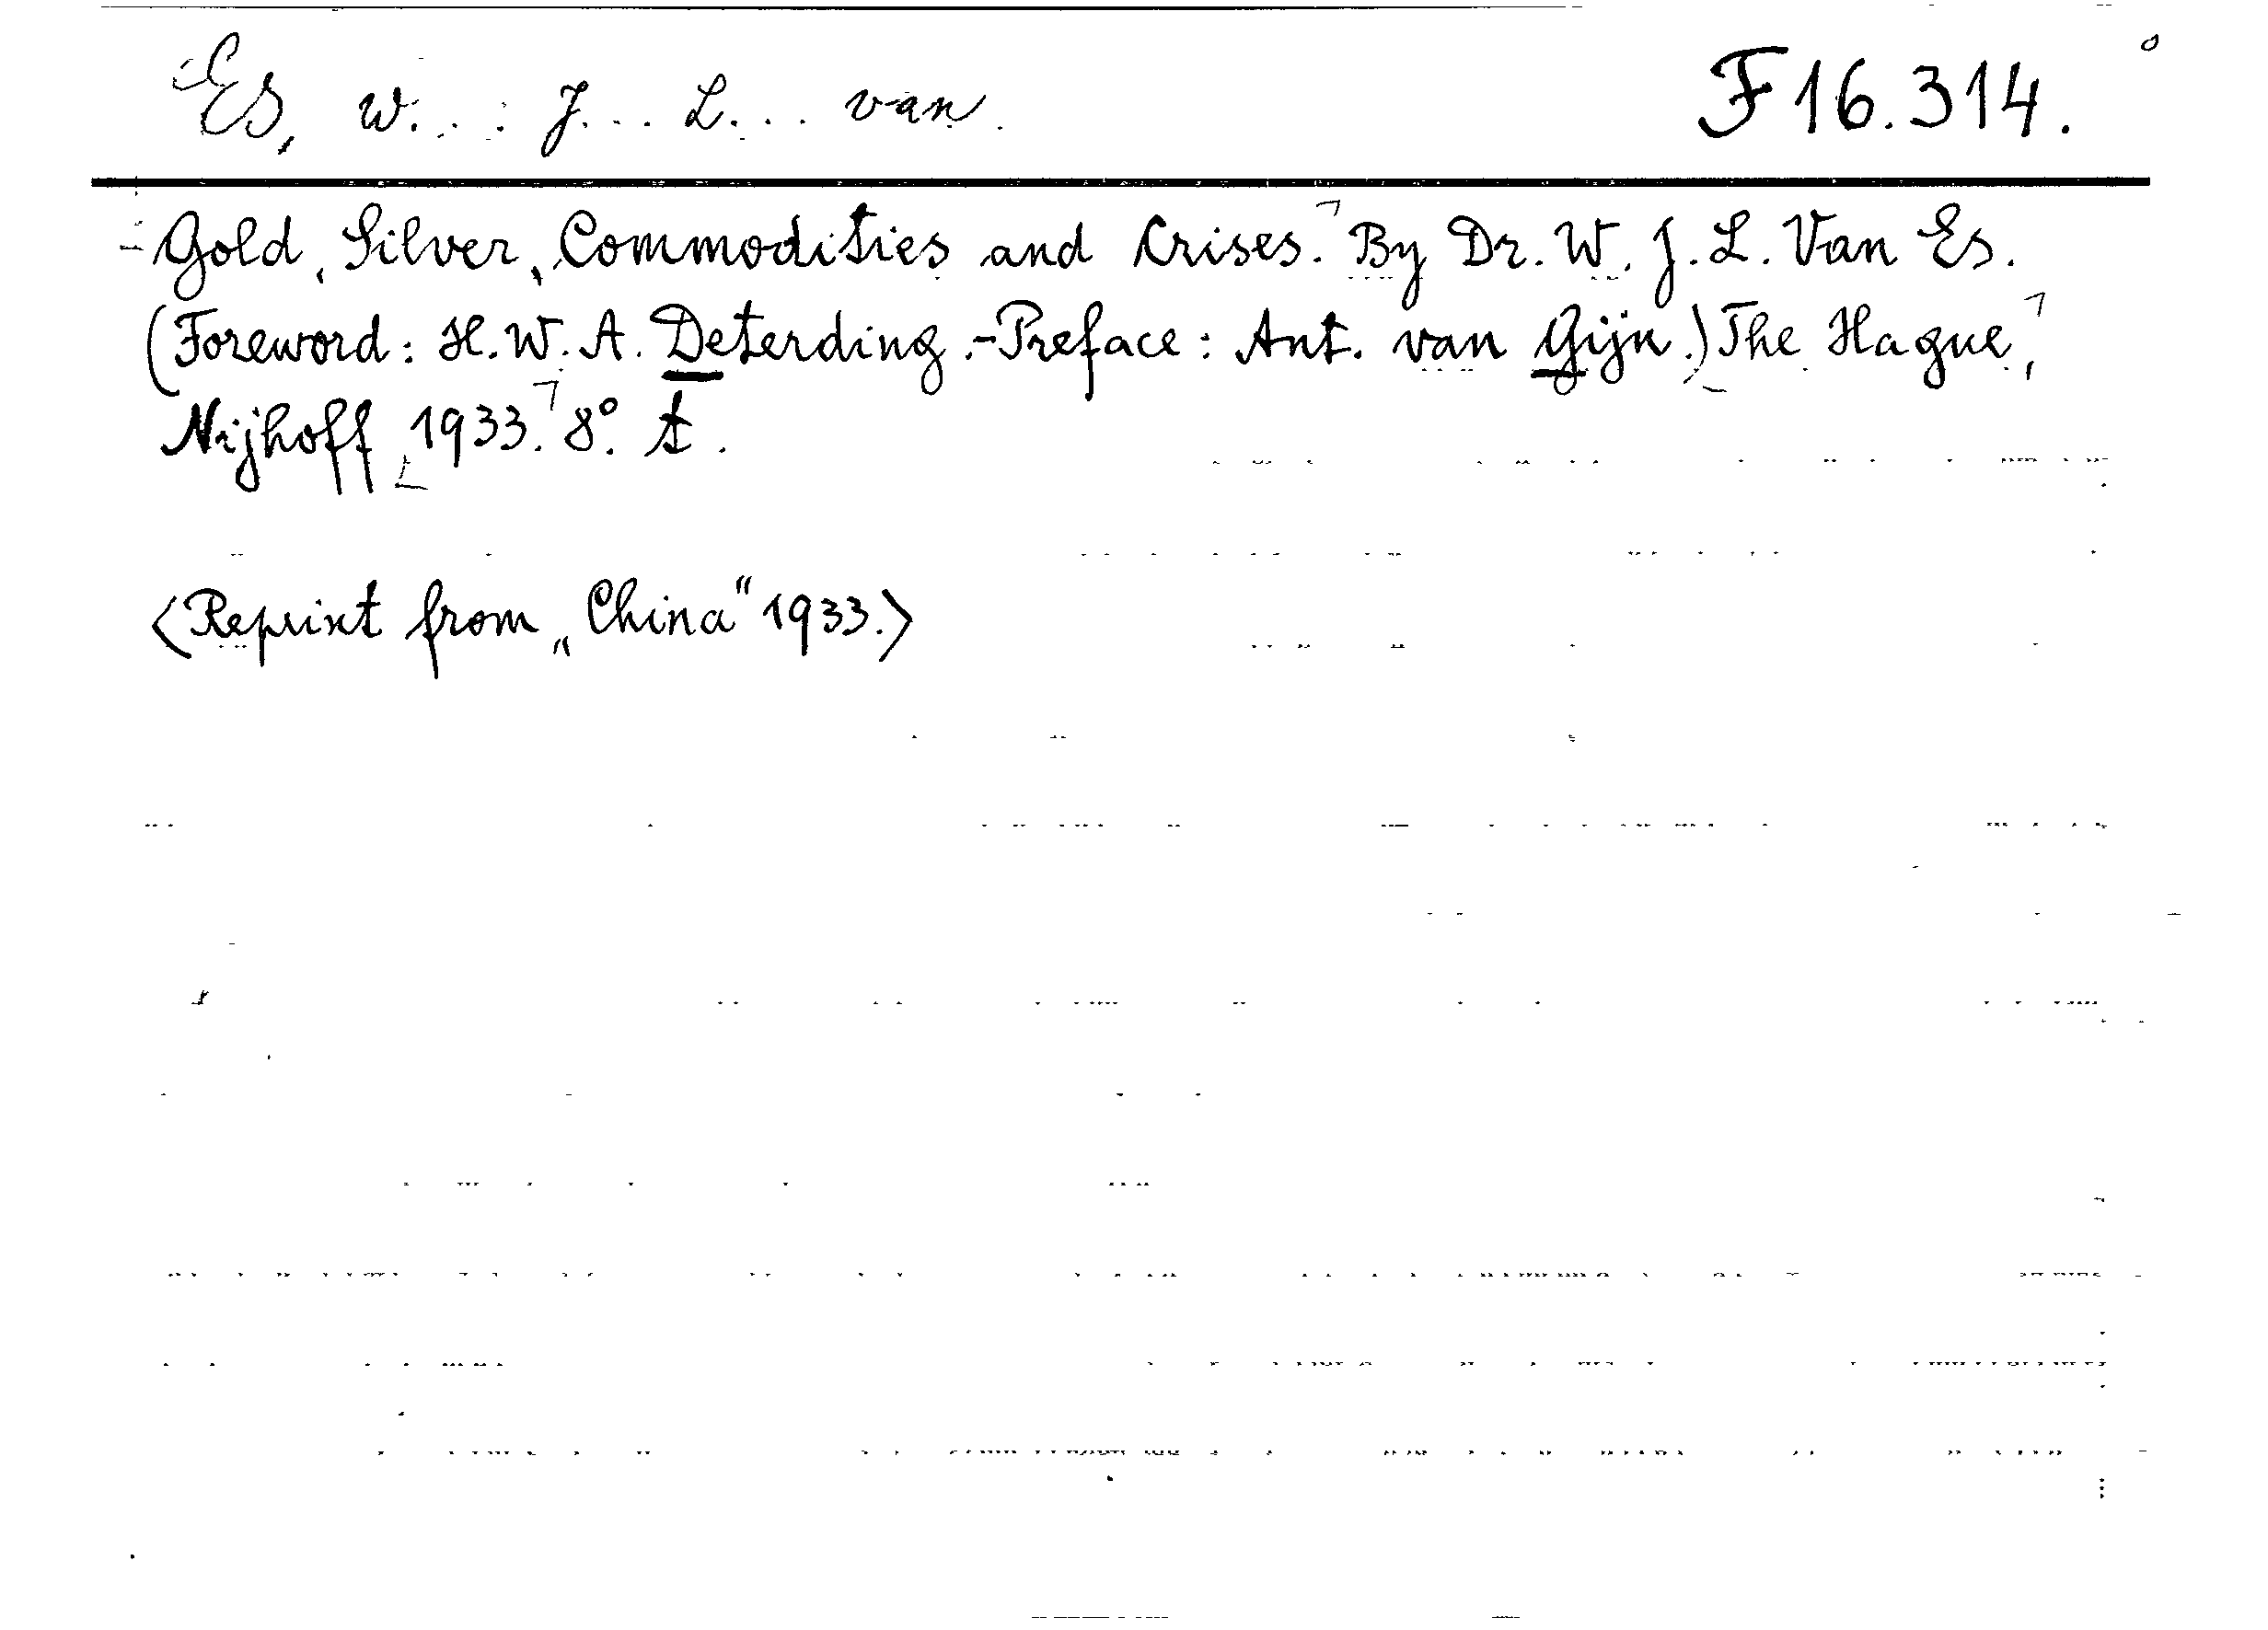 Es, W... J... L... van. F 16.314.
Gold, Silver, Commodities and Crises. By Dr. W. J. L. Van Es.
(Foreword: H. W. A. Deterding.-Preface: Ant. van Gijn.) The Hague,
Nijhoff 1933. 8°. t.
<Reprint from „China“ 1933.>